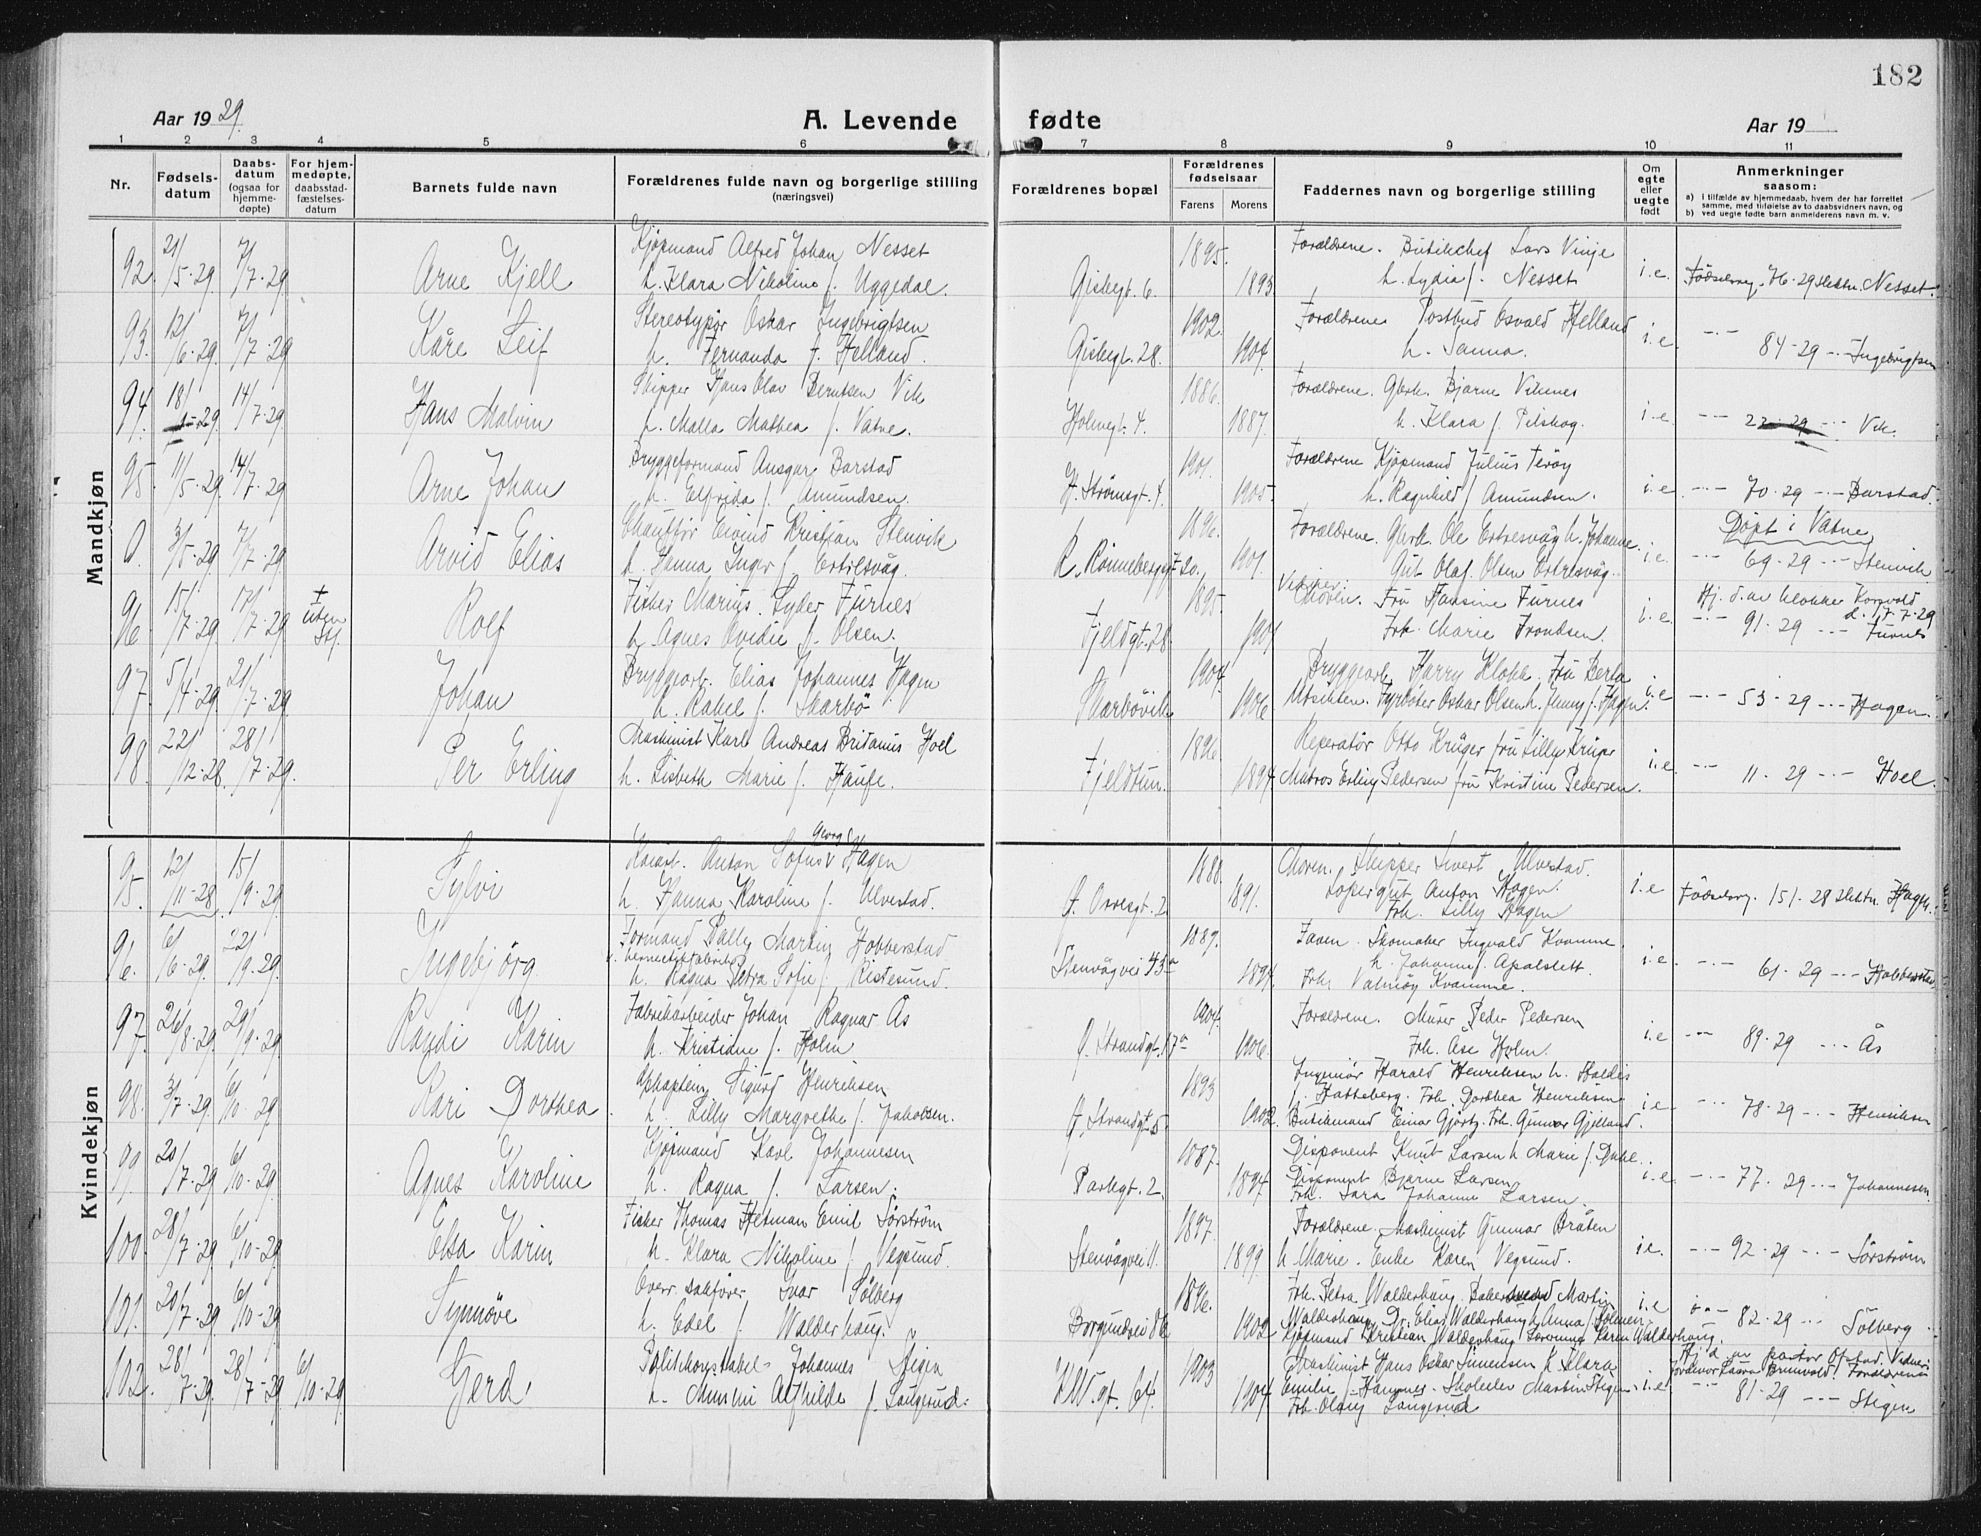 182
Aar 1929.
A. Levende fødte
Aar 19
1 2 3 4 5 6 7 8 9 10 11
Nr.
Fødsels-datum
Daabs-datum (ogsaa for hjemme-døpte)
For hjem-medøpte, daabsstad-fæstelses-datum
Barnets fulde navn
Forældrenes fulde navn og borgerlige stilling (næringsvei)
Forældrenes bopæl
Forældrenes fødselsaar
Farens Morens
Faddernes navn og borgerlige stilling
Om egte eller uegte født
Anmerkninger saasom:
a) I tilfælde av hjemmedaab, hvem der har forrettet samme, med tilføielse av to daabsvidners navn, og
b) ved uegte fødte barn anmelderens navn m. v.
Mandkjøn
92. 21/5-29. 7/7-29. Arne Kjell
Kjøpmand Alfred Johan Nesset
h. Klara Nikoline f. Uggedal.
Gisbegt. 6. 1895. 1893
Forældrene. Butikchef Lars Vinje
h. Lydia f. Nesset
i.e. Fødselsreg. 76-29 Nesset.
93. 12/6-29. 7/7-29 Kåre Leif
Stereotypør Oskar Ingebrigtsen
h. Fernanda f. Helland.
Gisbegt. 28. 1902. 1904.
Forældrene Postbud Osvald Helland
h. Sanna.
i.e. -"- 84-29 -"- Ingebrigtsen
94. 18/1-29. 14/7-29. Hans Malvin
Skipper Hans Olav Berntsen Vik
h. Malla Mathea f. Vatne.
Holmegt. 4. 1886. 1887.
Forældrene. Gbrk. Bjarne Viknes
h. Klara f. Pilskog.
i.e -"- 22-29 -"- Vik.
95. 11/5-29. 14/7-29. Arne Johan
Bryggeformand Ansgar Barstad
h. Elfrida f. Amundsen.
St. Strømsgt. 4. 1901. 1905.
Forældrene Kjøpmand Julius Terøy
h. Ragnhild f. Amundsen.
i.e. -"- 70-29 -"- Barstad.
0 3/5-29. 7/7-29. Arvid Elias
Chauffør Eivind Kristian Stenvik
h. Hanna Inger f. Ertresvåg.
R. Rønnebergsgt 20. 1896. 1901.
Forældrene. Gbrk. Ole Ertresvåg h. Johanne.
Gut Olaf Olsen Ertresvåg.
i.e. Døpt i Vatne
-"- 69-29 -"- Stenvik
96. 15/7-29. 17/7-29 + uten stf. Rolf
Fisker Marius Lyder Furnes
h. Agnes Ovidie f. Olsen.
Fjeldgt. 28. 1895. 1901
Vidner: Moren. Fru Hansine Furnes
Frk. Marie Trondsen.
i.e. Hj. d. av klokker Korsvold
d. 17-7-29
-"- 91-29 -"- Furnes
97. 5/4-29. 21/7-29. Johan
Bryggearb. Elias Johannes Hagen
h. Rakel f. Skarbö
Skarbövik 1904. 1906
Bryggearb. Harry Klokk. Fru Berta
Fyrbøter Oskar Olsen h. Jenny f. Hagen.
i.e -"- 53-29 -"- Hagen.
98. 22/12-28. 28/7-29. Per Erling
Maskinist Karl Andreas Britanius Hoel
h. Lisbeth Marie f. Haufe.
Fjeldtun. 1896. 1894
Reparatør Otto Krüger fru Lilly Krüger
Matros Erling Pedersen fru Kristine Pedersen.
i.e. -"- 11-29 -"- Hoel.
Kvindekjøn
95. 12/11-28 15/9-29. Sylvi
Anton Sofus Georg Hagen
h. Hanna Karoline f. Ulvestad.
Ø. Orresgt. 2. 1888. 1891.
Moren. Skipper Sivert Ulvestad.
Løpergut Anton Hagen.
Frk. Lilly Hagen
i.e Fødselsreg. 151-28 Hagen.
96. 6/6-29. 22/9-29. Ingebjörg
Formand Pally Martin Hobberstad
v. hermetikfabrik
h. Ragna Petra Sofie f. Ristesund.
Stenvågvei 43a 1889. 1894.
Faren. Skomaker Ingvald Kvamme
h. Johanne f. Apalsett.
Frk. Valmöy Kvamme.
i.e. -"- 61-29 -"- Hobberstad
97. 26/8-29. 29/9-29. Randi Karin
Fabrikarbeider Johan Ragnar Ås
h. Kristiane f. Holm
Ø. Strandgt. 17a 1904. 1906.
Forældrene. Murer Peder Pedersen
Frk. Åse Holm.
i.e -"- 89-29 -"- Ås
98. 3/7-29. 6/10-29. Kari Dorthea
Sigurd Henriksen
h. Lilly Margrethe f. Jakobsen.
Ø. Strandgt. 5 1893 1902.
Ingeniør Harald Henriksen h. Haldis
f. Hatteberg. Frk. Dorthea Henriksen
Butikmand Einar Gjörtz. Frk. Gunvor Gjelland.
i.e. -"- 78-29 -"- Henriksen
99. 20/7-29 6/10-29. Agnes Karoline
Kjøpmand Karl Johannesen
h. Ragna f. Larsen.
Parkgt. 2. 1887. 1894
Disponent Knut Larsen h. Marie f. Dahl.
Disponent Bjarne Larsen
Frk. Sara Johanne Larsen.
i.e. -"- 77-29 -"- Johannessen.
100. 28/7-29 6/10-29. Elsa Karin
Fisker Thomas Hetman Emil Sörström
h. Klara Nikoline f. Vegsund.
Stenvågvei 11. 1897. 1899.
Forældrene. Maskinist Gunnar Bråten
h. Marie. Enke Karen Vegsund.
i.e. -"- 92-29 -"- Sörström
101. 20/7-29 6/10-29 Synnöve
Overr. sakfører Ivar Sölberg
h. Edel f. Walderhaug.
Borgundvei 1896. 1902
Frk. Petra Walderhaug. Martin
Walderhaug. Dr. Elias Walderhaug h. Anna f. Holmen.
Kjøpmand Kristian Walderhaug Karen Walderhaug.
i.e -"- 82-29 -"- Sölberg
102. 28/7-29. 28/7-29 6/10-29 Gerd
Politikonstabel Johannes Stigen
h. Alfhilde f. Langerud.
K.W.gt. 64. 1903 1904
Maskinist Hans Oskar Simensen h. Klara
Emilie f. Hannes. Martin Stigen.
Frk. Olaug Langerud
i.e. Hj.d. av pastor Opstad. Vidner:
Jordmor Laura Brunvold. Forældrene
-"- 81-29 -"- Stigen